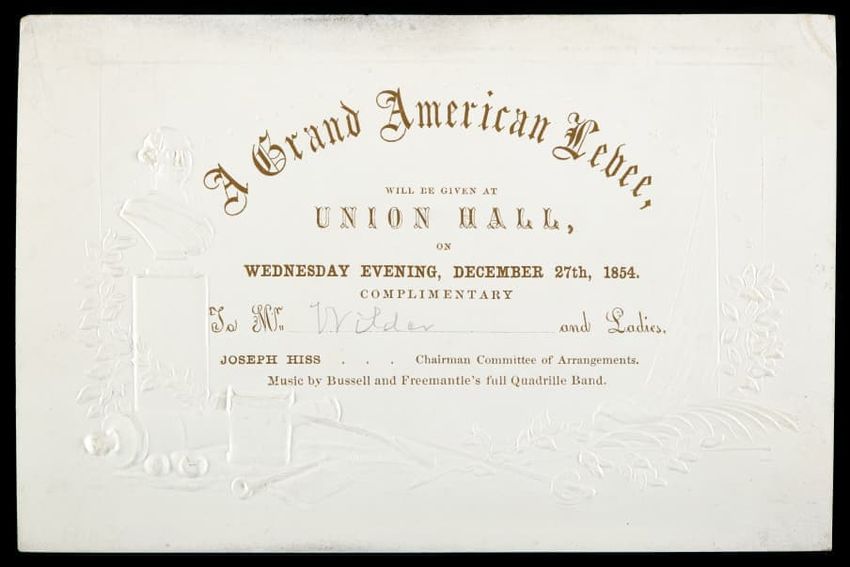 A Grand American Levee,
WILL BE GIVEN AT
UNION HALL,
ON
WEDNESDAY EVENING, DECEMBER 27th, 1854.
COMPLIMENTARY
To Mr. Wilder and Ladies.
JOSEPH HISS . . . Chairman Committee of Arrangements.
Music by Bussell and Freemantle's full Quadrille Band.